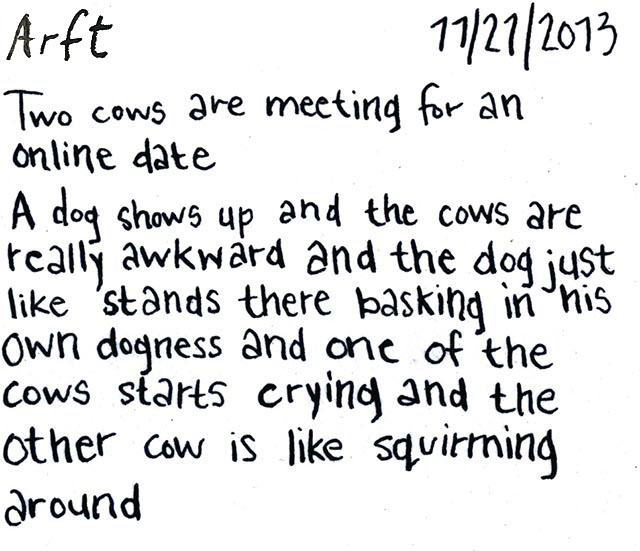 Arft 11/21/2013
Two cows are meeting for an
online date
A dog shows up and the cows are
really awkward and the dog just
like stands there basking in his
own dogness and one of the
cows starts crying and the
other cow is like squirming
around